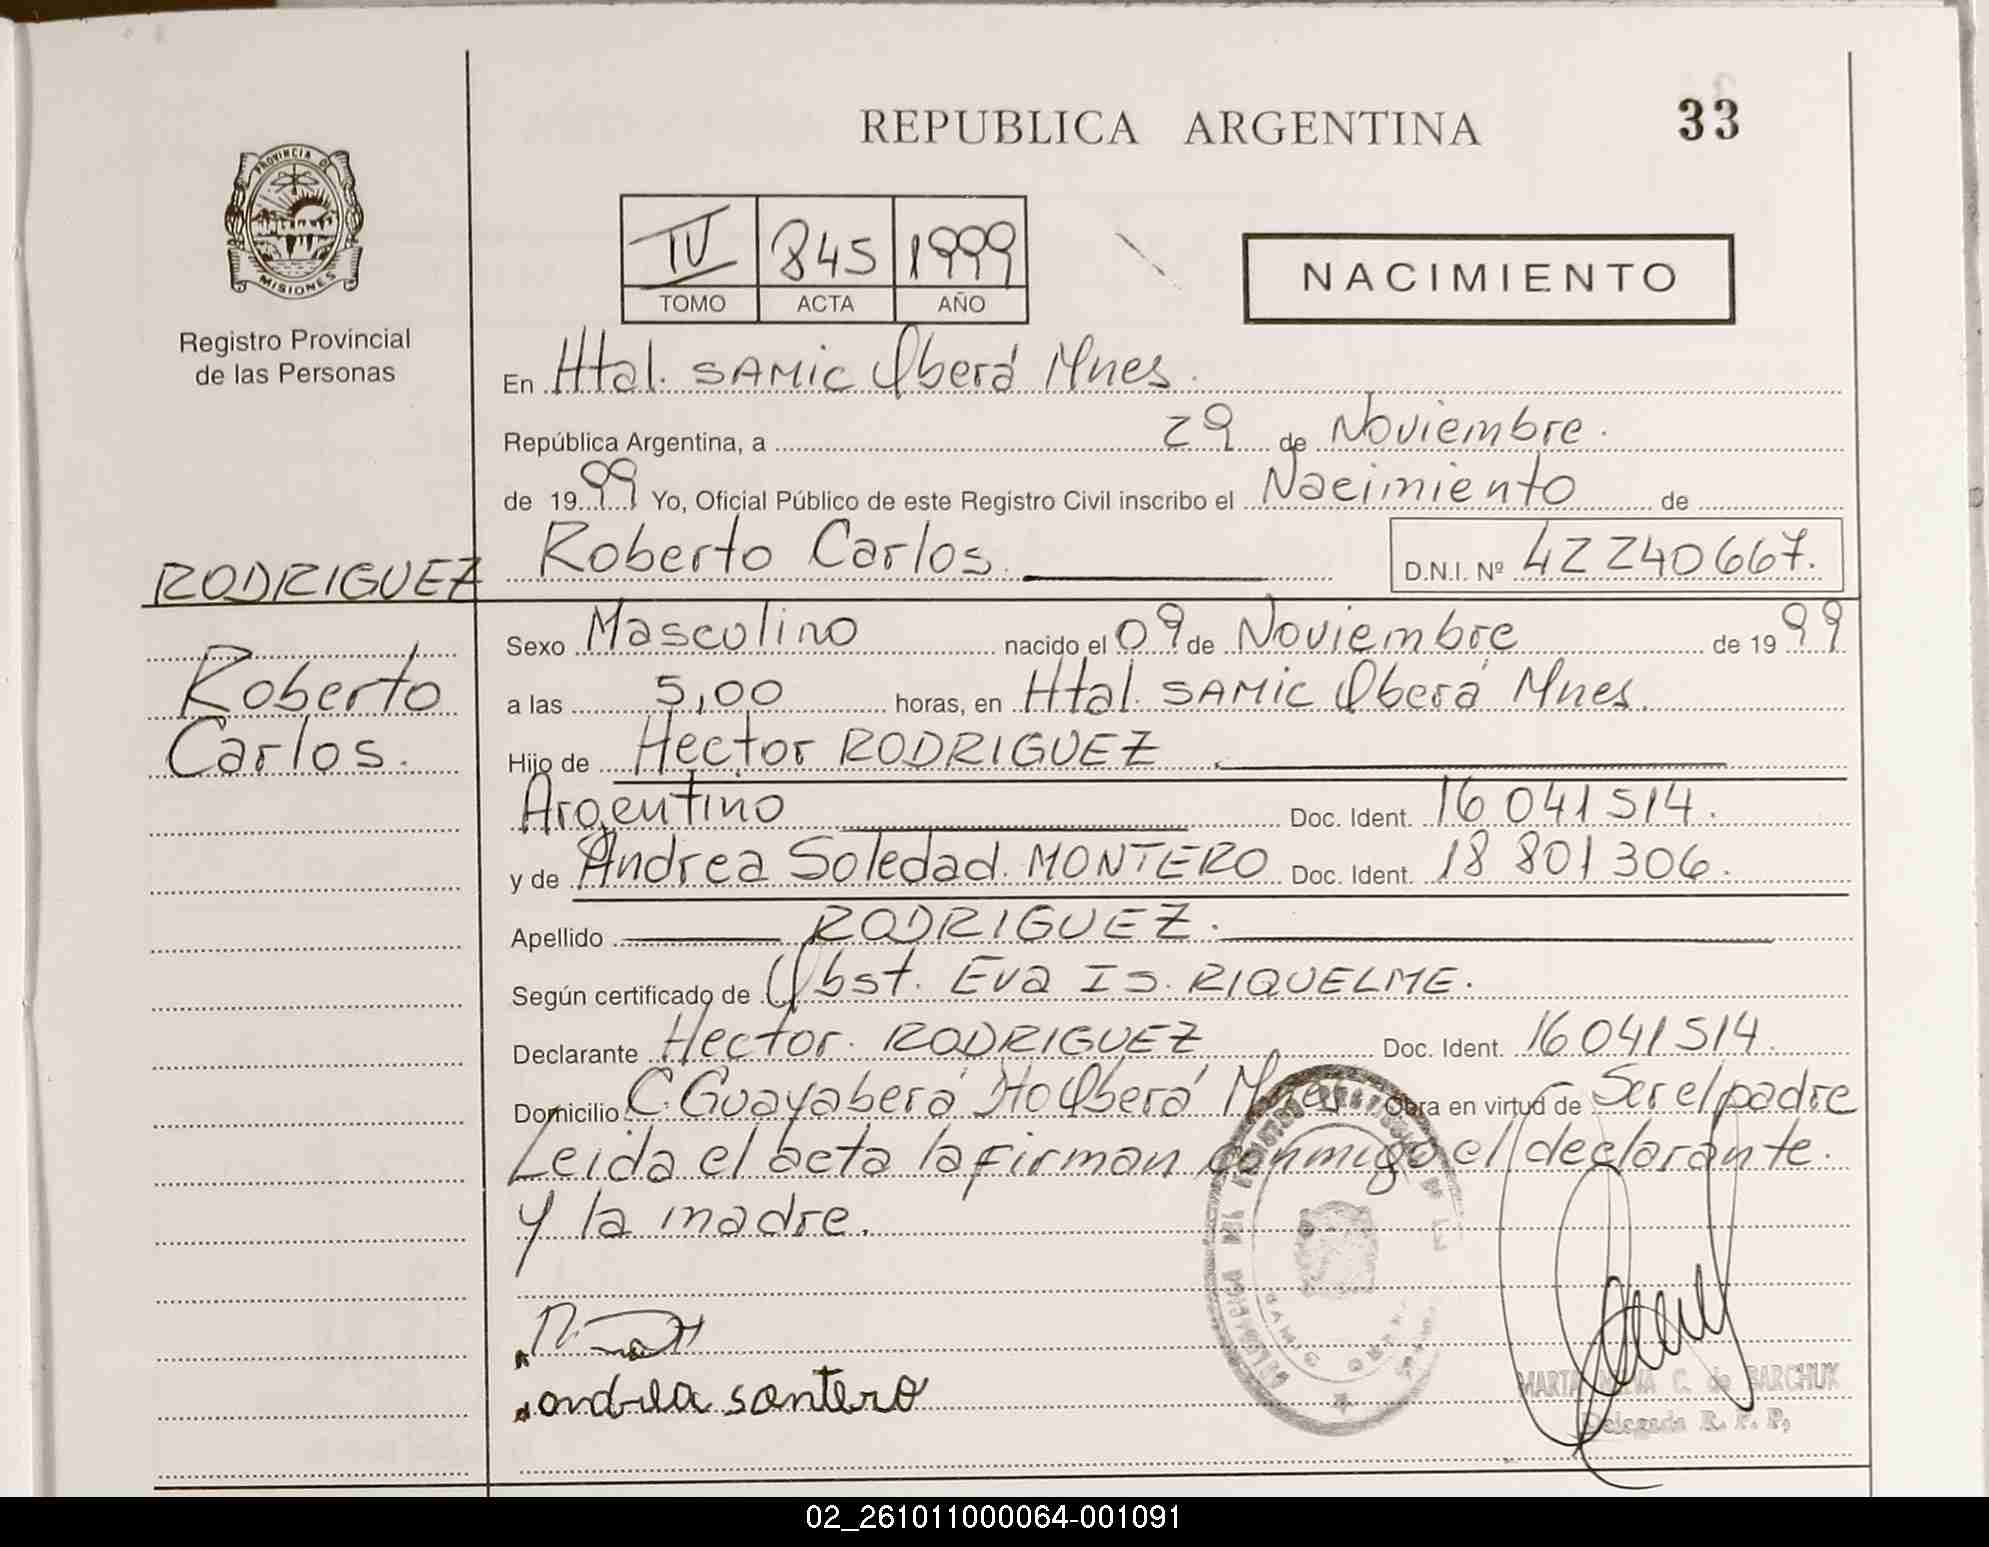 REPUBLICA ARGENTINA
33
PROVINCIA DE
MISIONES
Registro Provincial
de las Personas
IV 845 1999
TOMO ACTA AÑO
NACIMIENTO
En Htal. SAMIC Oberá Mnes.
República Argentina, a 29 de Noviembre.
de 1999 Yo, Oficial Público de este Registro Civil inscribo el Nacimiento de
Roberto Carlos. D.N.I. Nº 42240667.
RODRIGUEZ
Roberto
Carlos.
Sexo Masculino nacido el 09 de Noviembre de 1999
a las 5,00 horas, en Htal. SAMIC Oberá Mnes.
Hijo de Hector RODRIGUEZ
Argentino Doc. Ident. 16 041 514.
y de Andrea Soledad. MONTERO Doc. Ident. 18 801 306.
Apellido RODRIGUEZ.
Según certificado de Obst. Eva Is. RIQUELME.
Declarante Hector. RODRIGUEZ Doc. Ident. 16 041 514.
Domicilio C. Guayaberá Oberá Mnes Obra en virtud de Ser el padre
Leida el acta la firman conmigo el declarante.
y la madre.
andrea santero
MARTA C. de BARCHUK
Delegada R. P. P.
02_261011000064-001091